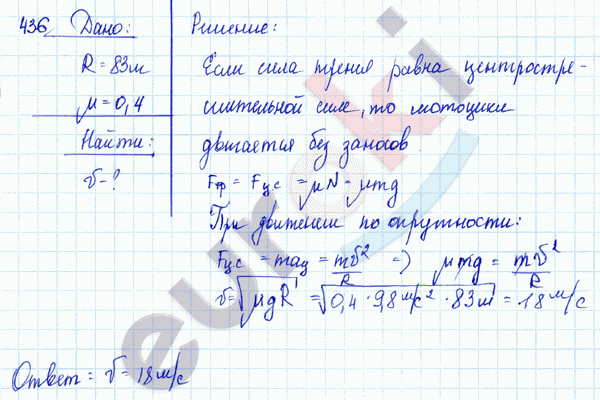 436 Дано:
R = 83м
μ = 0,4
Найти:
v - ?
Решение:
Если сила трения равна центростре-
мительной силе, то мотоцикл
двигается без заносов
Fтр = Fцс = μN = μmg
При движении по окружности:
Fцс = maц = mv²/R => μmg = mv²/R
v = √μgR = √0,4 · 9,8 м/с² · 83м = 18 м/с
Ответ = v = 18 м/с
euroki